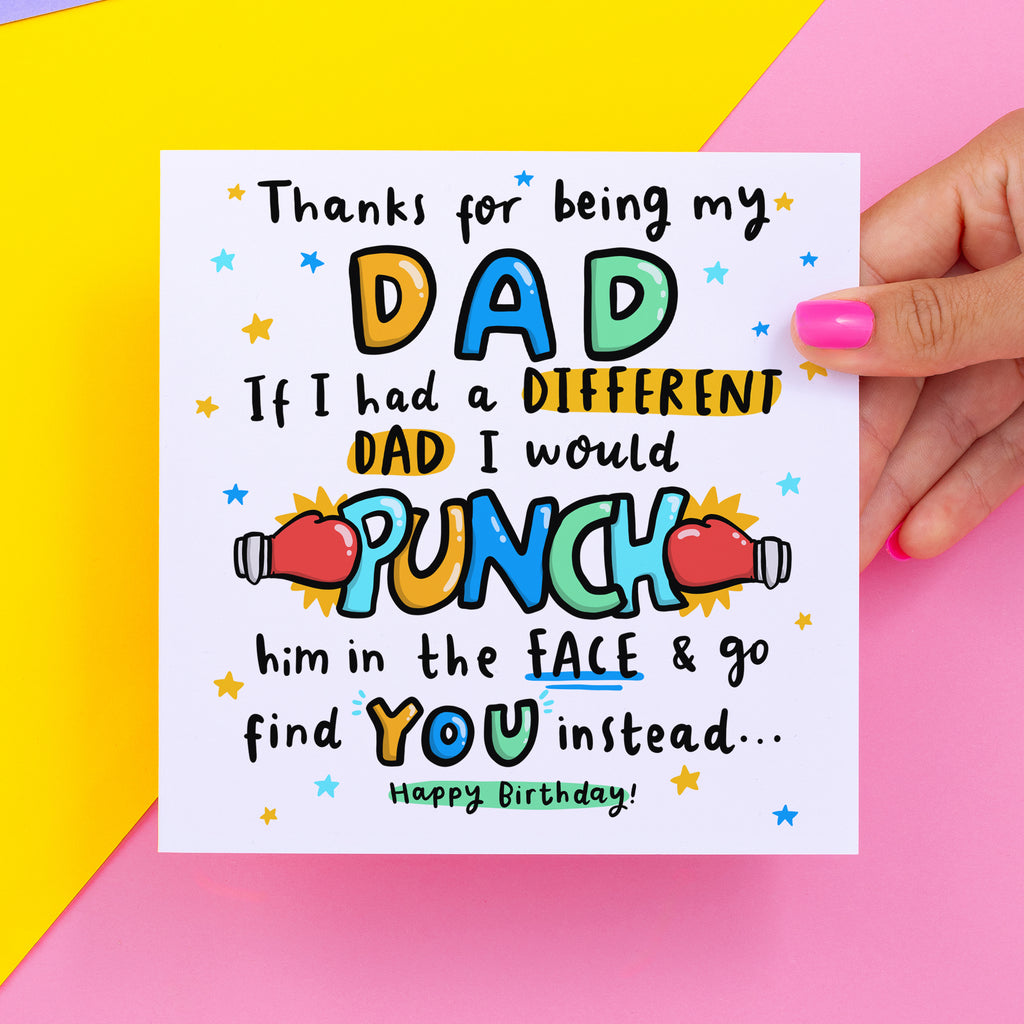 Thanks for being my
DAD
If I had a DIFFERENT
DAD I would
PUNCH
him in the FACE & go
find YOU instead...
Happy Birthday!